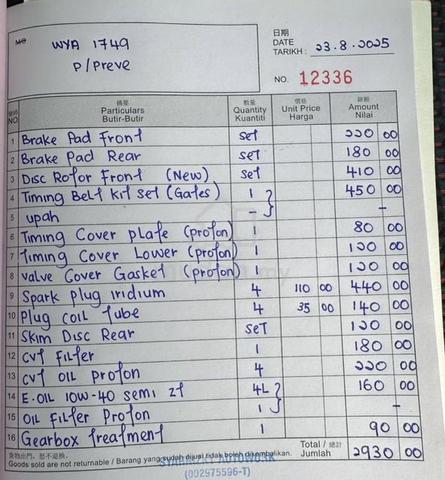 WYA 1749
P/Preve
日期
DATE
TARIKH : 23.8.2025
NO. 12336
NO 摘要 Particulars Butir-Butir 數量 Quantity Kuantiti 價格 Unit Price Harga 銀額 Amount Nilai
1 Brake Pad Front set 220 00
2 Brake Pad Rear set 180 00
3 Disc Rotor Front (New) set 410 00
4 Timing Belt kit set (Gates) 1 450 00
5 upah - -
6 Timing Cover plate (proton) 1 80 00
7 Timing Cover Lower (proton) 1 120 00
8 Valve Cover Gasket (proton) 1 120 00
9 Spark plug iridium 4 110 00 440 00
10 Plug coil Tube 4 35 00 140 00
11 Skim Disc Rear SET 120 00
12 cvt Filter 1 180 00
13 cvt oil proton 4 220 00
14 E.OIL 10W-40 semi zt 4L 160 00
15 Oil Filter Proton 1 -
16 Gearbox treatment 1 90 00
貨物出門,恕不退換。
Goods sold are not returnable / Barang yang sudah dijual tidak boleh dikembalikan.
Total / 總計
Jumlah 2930 00
AUTOWORK
(002975596-T)